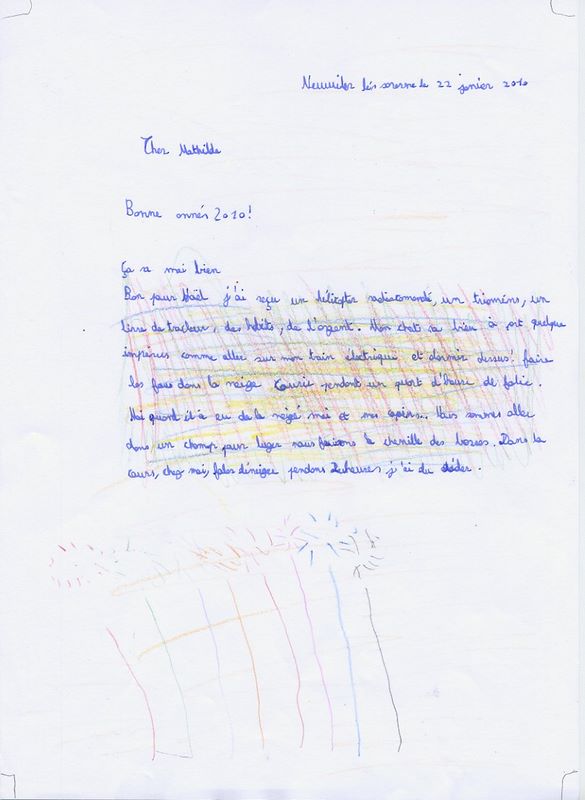 Neuwiler lès saverne le 22 janier 2010
Cher Mathilde
Bonne annés 2010!
Ça va mai bien
Bon pour Noël j'ai reçu un hélicopter radiocomandé, un triomins, un
livre de tracteur, des habits, de l'argent. Mon chat va bien à part quelque
comme aller sur mon train électrique et dormir dessus! faire
les faus dans la neige courir pendant un quart d'heure de folie.
Moi quant il a eu de la neige moi et mes copins... Nous sommes aller
dans un champ pour luger nous faisons la chenille des bosses. Dans la
cours, chez moi, fales déneiger pendans 2 heures j'ai du